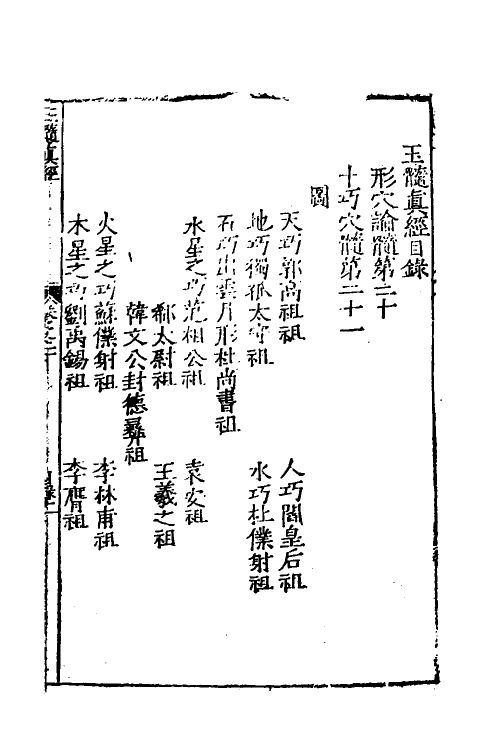 玉髓眞經目錄
形穴論髓第二十
十巧穴髓第二十一
圖
天巧郭高祖祖 人巧閻皇后祖
地巧獨孤太守祖 水巧杜僕射祖
石巧出雲月形杜尚書祖
水星之巧范相公祖 袁安祖
郗太尉祖 王羲之祖
韓文公封德彞祖
火星之巧蘇僕射祖 李林甫祖
木星之巧劉禹錫祖 李膺祖
玉髓眞經